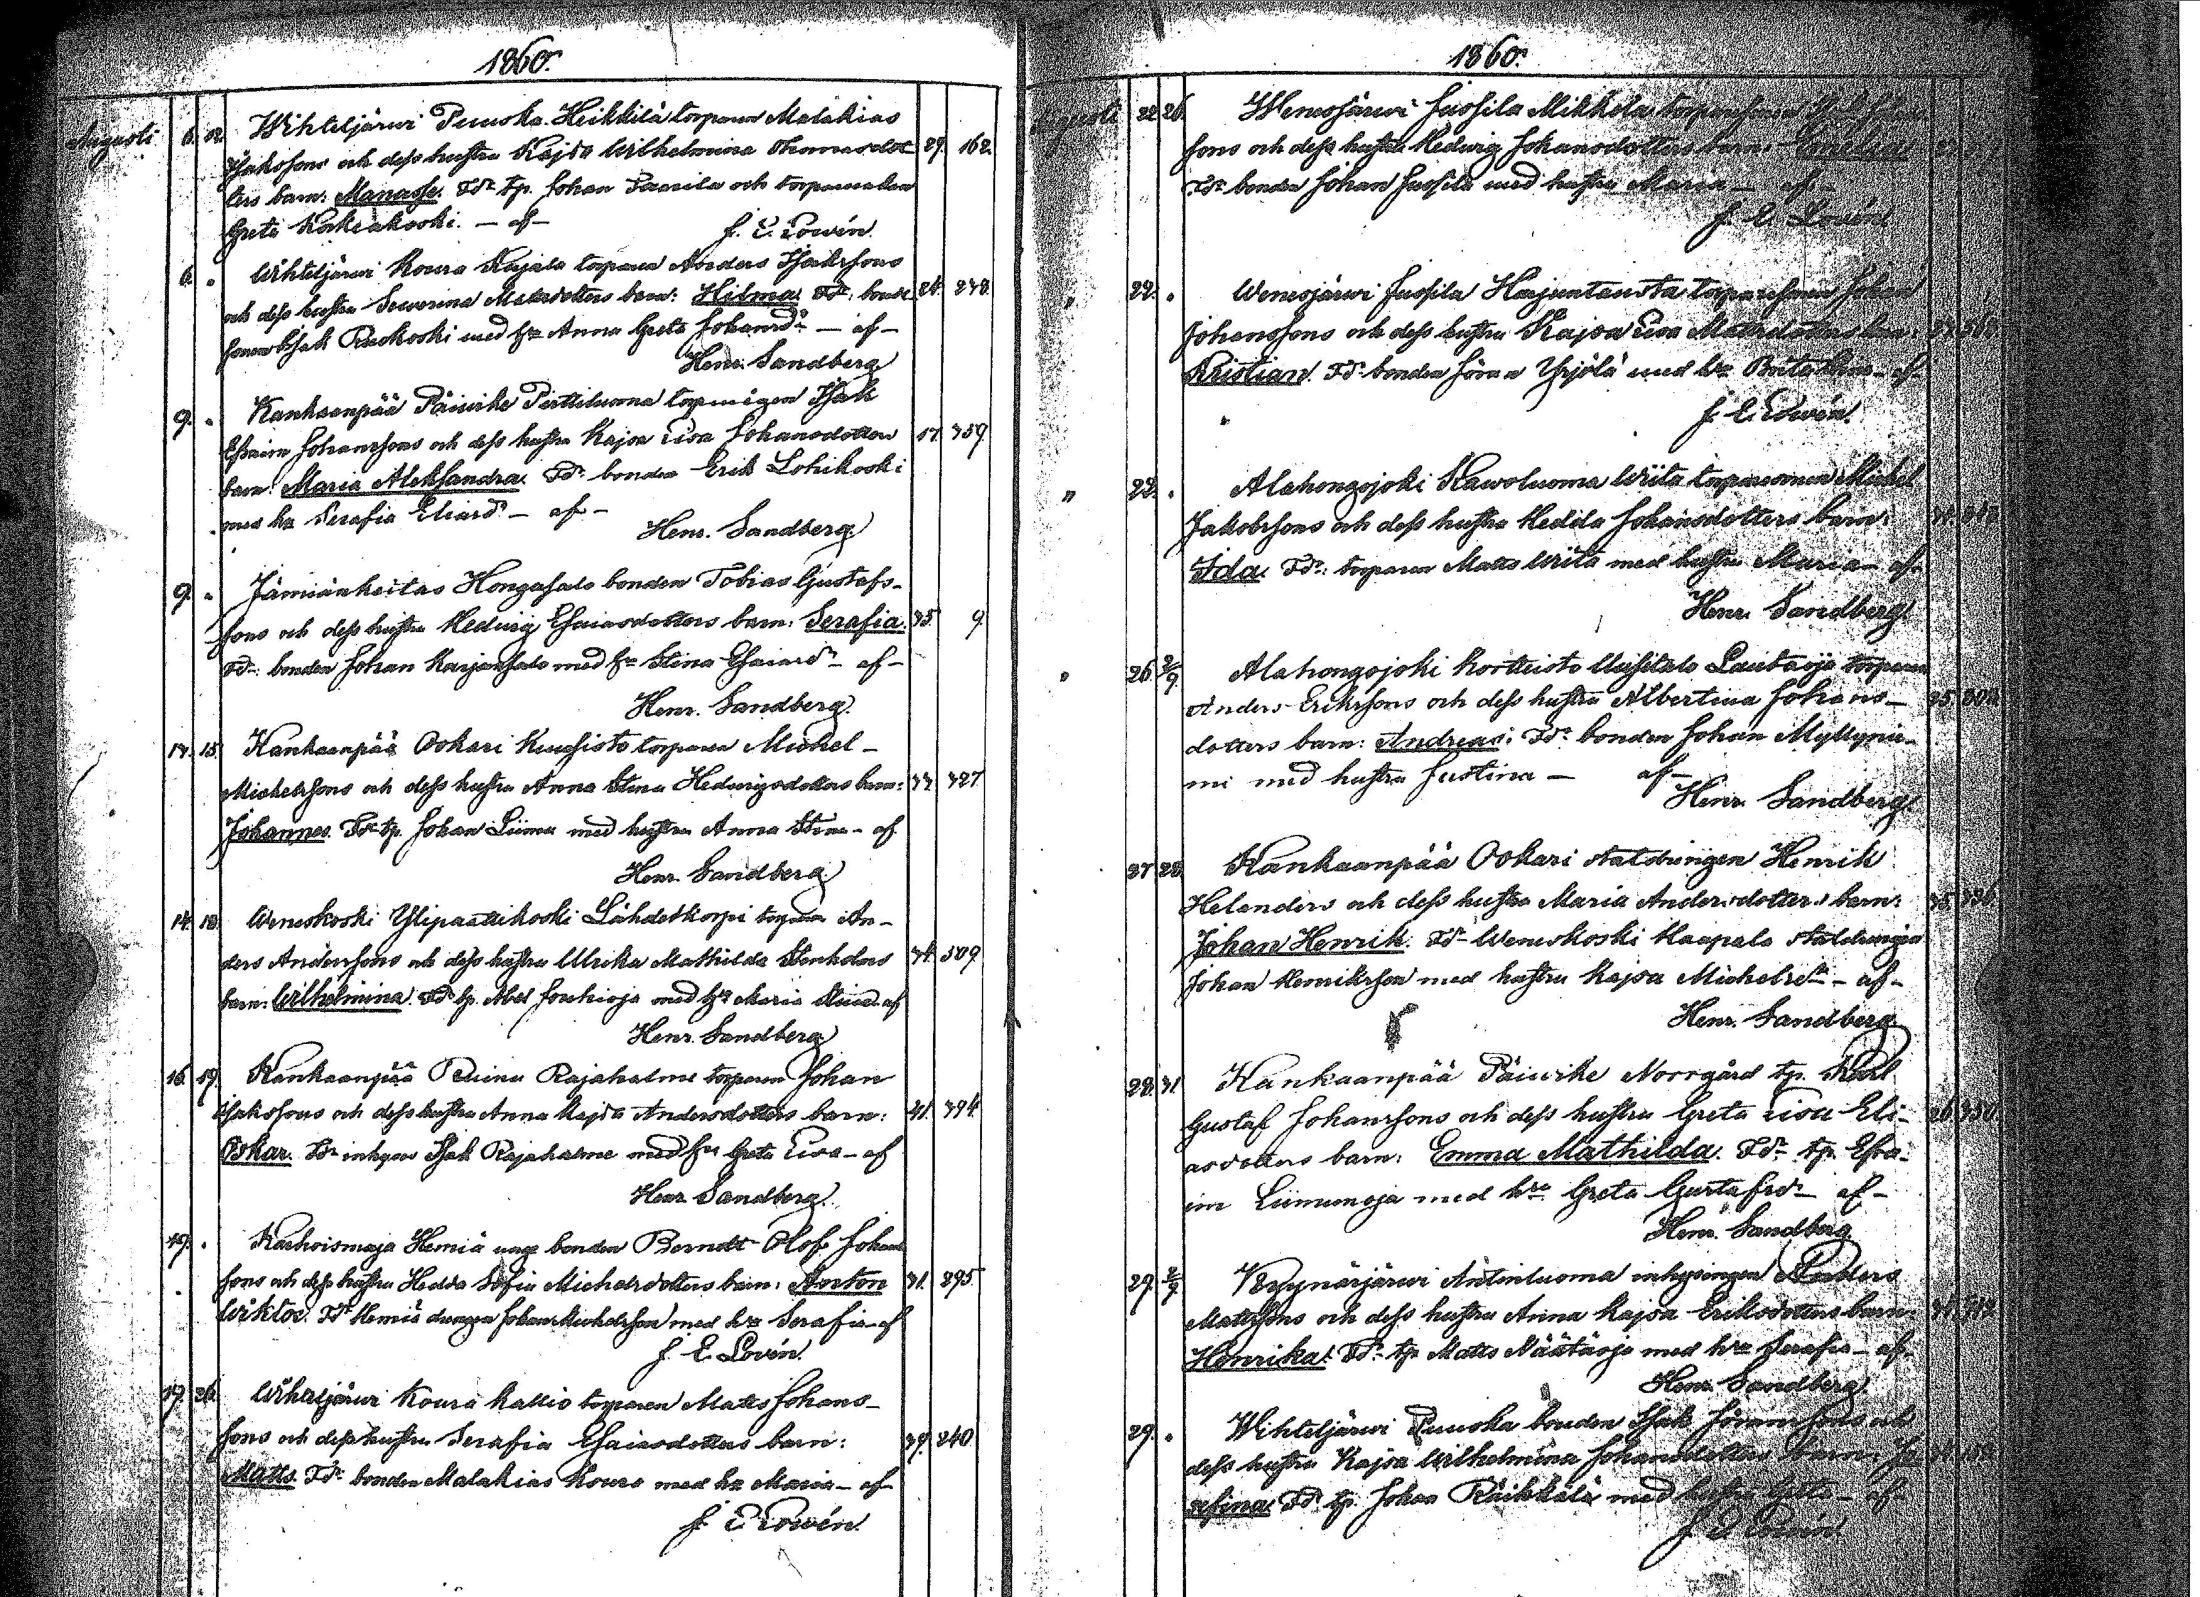 1860.
Augusti 6. 12. Wihteljärwi Puuska Heikkilä torparen Malakias
Isaksons och dess hustru Kajsa Wilhelmina Thomasdot 29. 162.
ters barn: Manasse. Fdr tp. Johan Paasila och torparenkan
Greta Korkiakoski. — af —
J. E. Lowén.
6. " Wihteljärwi Koura Rajala torparen Anders Isakssons
och dess hustru Sewerina Matsdotters barn: Hilma. Fdr: bonde 24. 238.
sonen Isak Ruokoski med hu Anna Greta Johansdr — af —
Henr. Sandberg
9. " Kankaanpää Päiwike Perttiluoma Isak
Efraim Johanssons och dess hustru Kajsa Eiva Johansdotters 359
barn: Maria Aleksandra. Fdr bonden Erik Lohikoski
med hu Serafia Eliasdr — af —
Henr. Sandberg.
9. " Jämiänkeitas Hongasalo bonden Tobias Gustafs-
sons och dess hustru Hedwig Esaiasdotters barn: Serafia. 35. 9.
Fdr: bonden Johan Karjansalo med hu Stina Esaiasdr — af —
Henr. Sandberg.
14. 15. Kankaanpää Oskari Kuusisto torparen Michel-
Michelssons och dess hustru Anna Stina Hedwigsdotters barn: 33. 327.
Johannes. Fdr tp. Johan Liima med hustru Anna Stina — af
Henr. Sandberg.
14. 18. Weneskoski Ylipaattikoski Lähdetkorpi torparen An-
ders Anderssons och dess hustru Ulrika Mathilda 34. 509.
barn: Wilhelmina. Fdr tp. Abel Jouhioja med hu Maria af
Henr. Sandberg.
16. 19. Kankaanpää Ruinu Rajahalme torparen Johan
Isaksons och dess hustru Anna Kajsa Andersdotters barn: 41. 394.
Oskar. Fdr inhyses Isak Rajahalme med hu Greta Eiva — af
Henr. Sandberg.
19. " Karhoismaja Hemiä unge bonden Berndt Olof Johans
sons och dess hustru Hedda Sofia Michelsdotters barn: Anton 31. 295.
Wiktor. Fdr Hemiä drengen Johan Michelsson med hu Serafia — af
J. E. Lovén.
19. 26. Wihteljärwi Koura Kallio torparen Matts Johans-
sons och dess hustru Serafia Esaiasdotters barn: 39. 240.
Matts. Fdr bonden Malakias Koura med hu Maria — af
J. E. Lowén.
1860.
Augusti 22. 26. Wenesjärwi Jussila Mikkola torparesonen
sons och dess hustru Hedwig Johansdotters barn:
Fdr bonden Johan Jussila med hustru Maria — af —
J. E. Lovén
" 22. " Wenesjärwi Jussila Harjuntausta torparesonen Johan
Johanssons och dess hustru Kajsa Eiva
Kristian. Fdr bonden Jöran Yrjölä med hu Brita — af
J. E. Lowén.
" 22. " Alahongojoki Kawoluoma Wiita torparesonen Michel
Jakobssons och dess hustru Hedda Johansdotters barn:
Ida. Fdr: torparen Matts Wiita med hustru Maria — af
Henr. Sandberg.
" 26. 2/9. Alahongojoki Kortteisto Uusitalo Lautaoja torparen
Anders Erikssons och dess hustru Albertina Johans-
dotters barn: Andreas. Fdr bonden Johan Myllynie-
mi med hustru Justina — af —
Henr. Sandberg.
27. 28. Kankaanpää Oskari statdrängen Henrik
Helenders och dess hustru Maria Andersdotters barn:
Johan Henrik. Fdr Weneskoski Kaapalo statdrängen
Johan Henriksson med hustru Kajsa Michelsdr — af —
Henr. Sandberg
28. 31. Kankaanpää Päiwike Norrgård tp. Karl
Gustaf Johanssons och dess hustru Greta Eiva Eli-
asdotters barn: Emma Mathilda. Fdr tp. Efra-
im Liimunoja med hu Greta Gustafsdr — af —
Henr. Sandberg.
29. 2/9. Kyynärjärwi Antinluoma inhysingen Anders
Mattssons och dess hustru Anna Kajsa Eriksdotters barn:
Henrika. Fdr tp. Matts Näätäoja med hu Serafia — af.
Henr. Sandberg.
29. " Wihteljärwi Puuska bonden Isak Jöranssons och
dess hustru Kajsa Wilhelmina Johansdotters barn: Jo
sefina. Fdr tp. Johan Räikkälä med hustru Greta — af
J. E. Lowén.